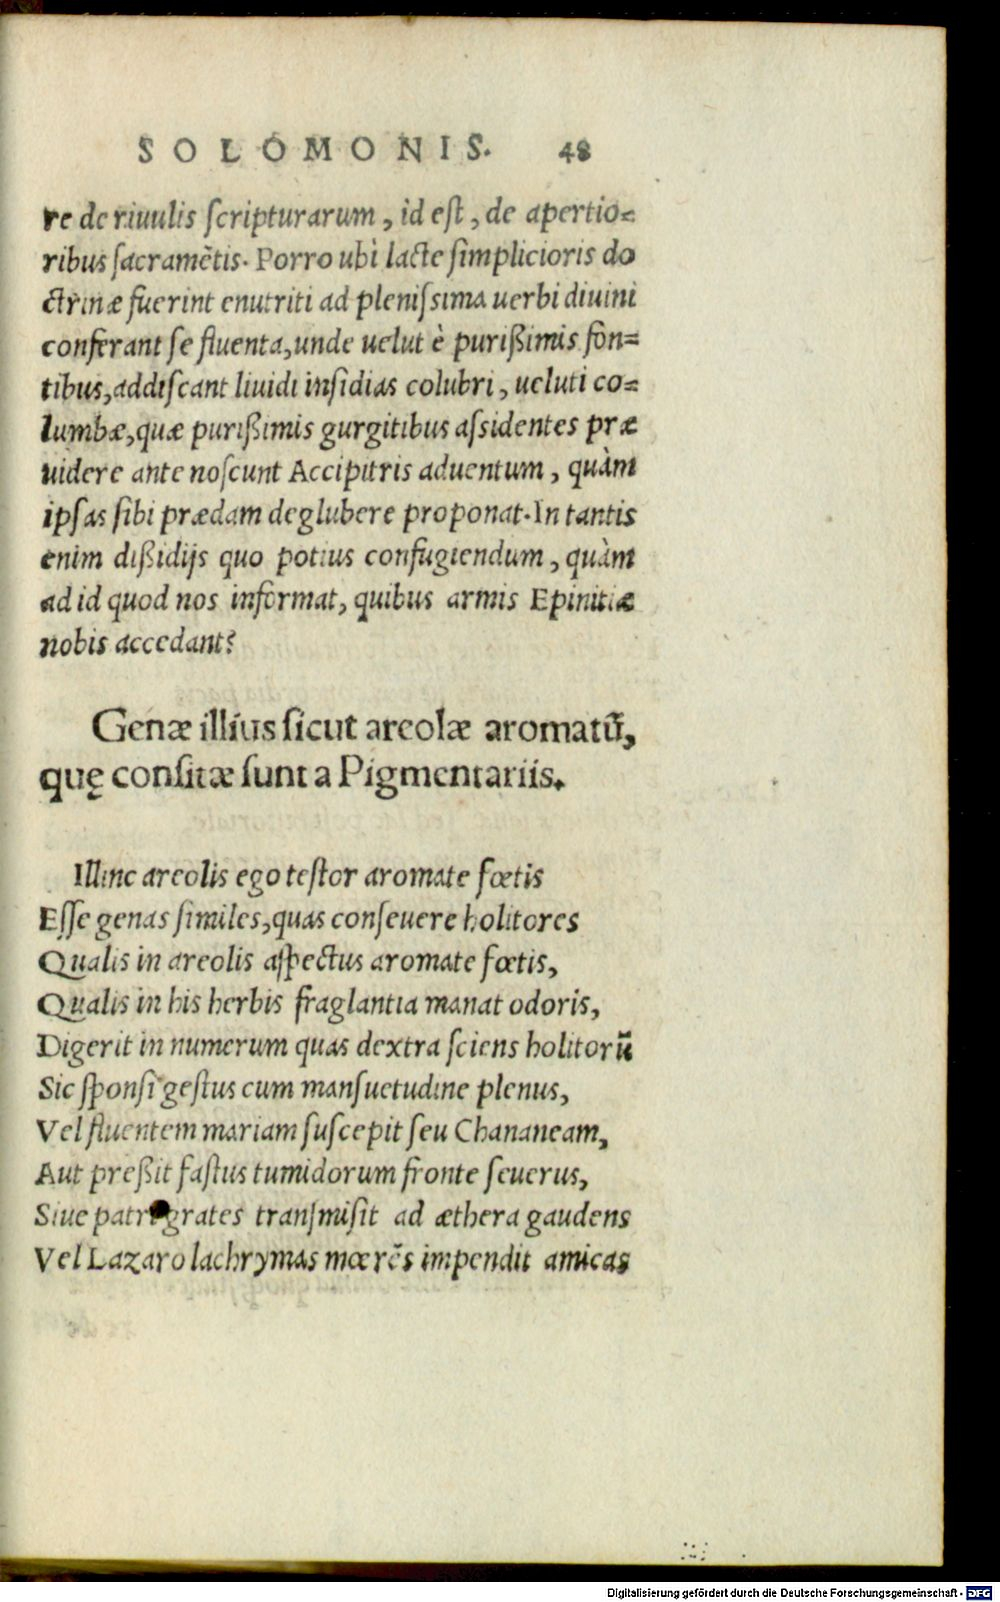 SOLOMONIS. 48
re de riuulis scripturarum, id est, de apertio=
ribus sacramẽtis. Porro ubi lacte simplicioris do
ctrinæ fuerint enutriti ad plenissima uerbi diuini
conferant se fluenta, unde uelut è purißimis fon=
tibus, addiscant liuidi insidias colubri, ueluti co=
lumbæ, quæ purißimis gurgitibus assidentes præ
uidere ante noscunt Accipitris aduentum, quàm
ipsas sibi prædam deglubere proponat. In tantis
enim dißidijs quo potius confugiendum, quàm
ad id quod nos informat, quibus armis Epinitiæ
nobis accedant?
Genæ illius sicut areolæ aromatũ,
quę consitæ sunt a Pigmentariis.
Illinc areolis ego testor aromate fœtis
Esse genas similes, quas conseuere holitores
Qualis in areolis aspectus aromate fœtis,
Qualis in his herbis fraglantia manat odoris,
Digerit in numerum quas dextra sciens holitorũ
Sic sponsi gestus cum mansuetudine plenus,
Vel fluentem mariam suscepit seu Chananeam,
Aut preßit fastus tumidorum fronte seuerus,
Siue patri grates transmisit ad æthera gaudens
Vel Lazaro lachrymas mœrẽs impendit amicas
Digitalisierung gefördert durch die Deutsche Forschungsgemeinschaft - DFG